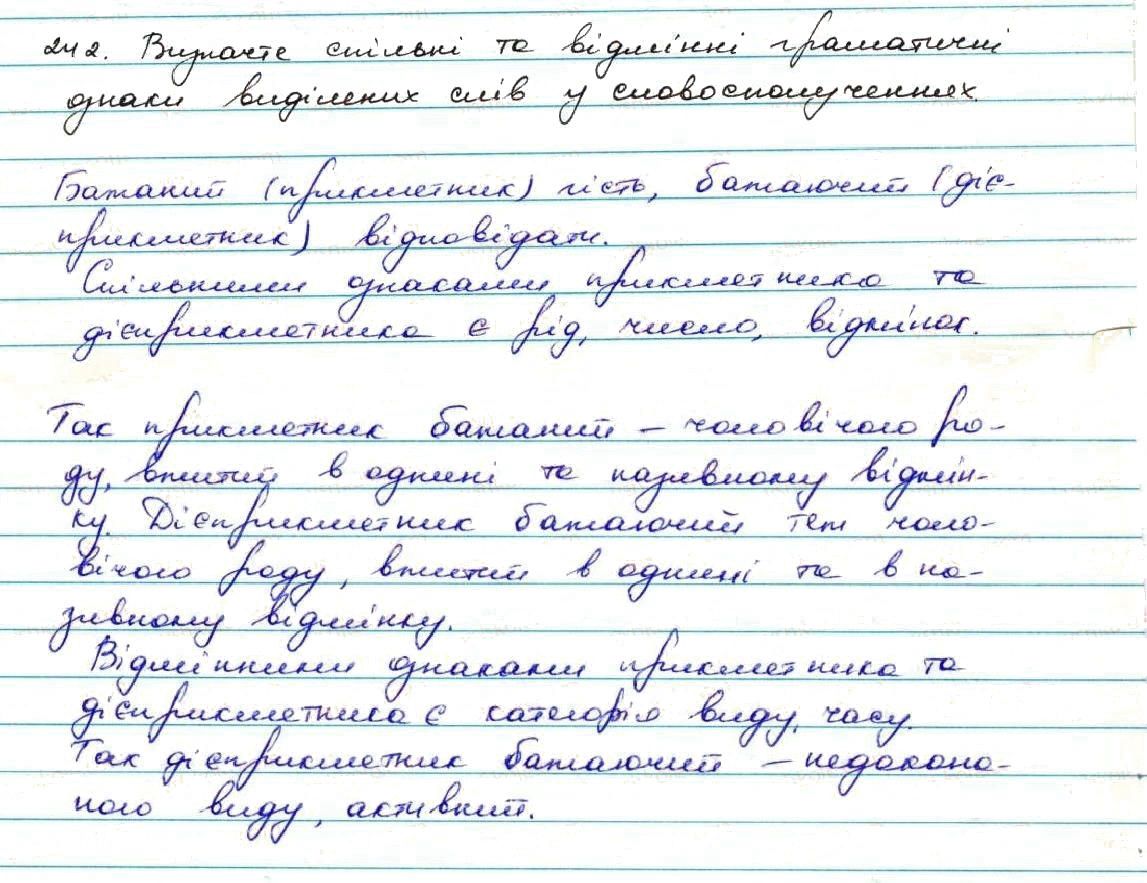 242. Визначте спільні та відмінні граматичні
ознаки виділених слів у словосполученнях.
Бажаний (прикметник) гість, бажаючий (діє-
прикметник) відповідати.
Спільними ознаками прикметника та
дієприкметника є рід, число, відмінок.
Так прикметник бажаний – чоловічого ро-
ду, вжитий в однині та називному відмін-
ку. Дієприкметник бажаючий теж чоло-
вічого роду, вжитий в однині та в на-
зивному відмінку.
Відмінними ознаками прикметника та
дієприкметника є категорія виду, часу.
Так дієприкметник бажаючий – недокона-
ного виду, активний.